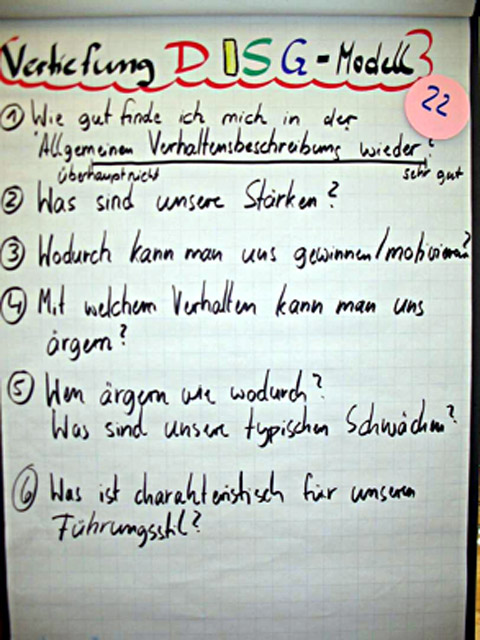 Vertiefung DISG-Modell
22
① Wie gut finde ich mich in der
Allgemeinen Verhaltensbeschreibung wieder?
überhaupt nicht sehr gut
② Was sind unsere Stärken?
③ Wodurch kann man uns gewinnen/motivieren?
④ Mit welchem Verhalten kann man uns
ärgern?
⑤ Wen ärgern wir wodurch?
Was sind unsere typischen Schwächen?
⑥ Was ist charakteristisch für unseren
Führungsstil?